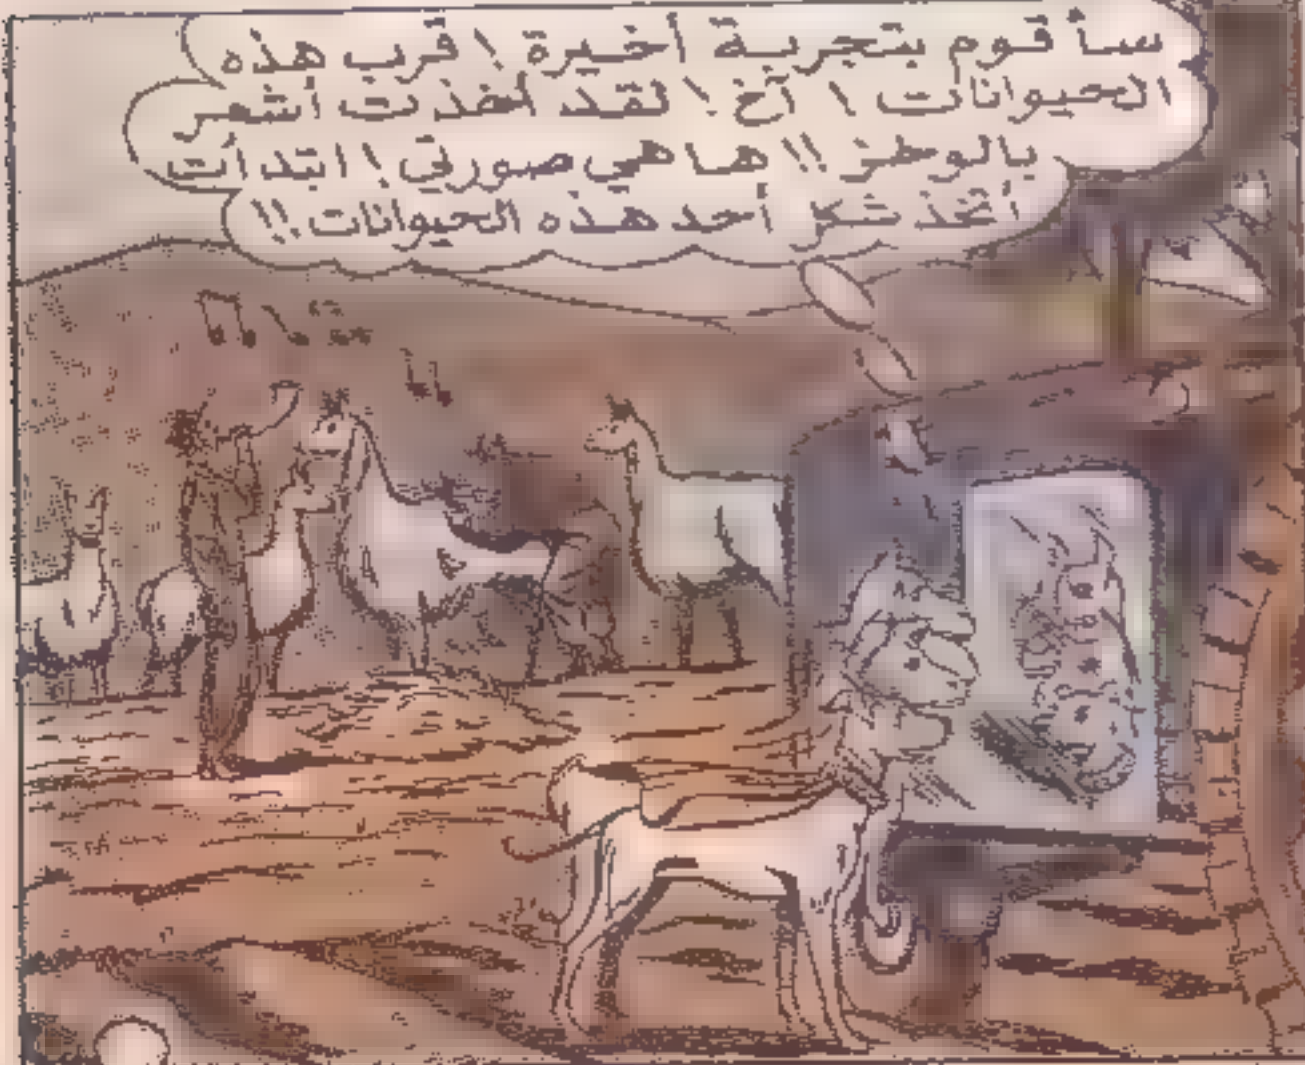 سأقوم بتجربة أخيرة ! قرب هذه
الحيوانات ! آخ ! لقد أخذت أشعر
بالوخز !! ها هي صورتي ! ابتدأت
أتخذ شكل أحد هذه الحيوانات !!